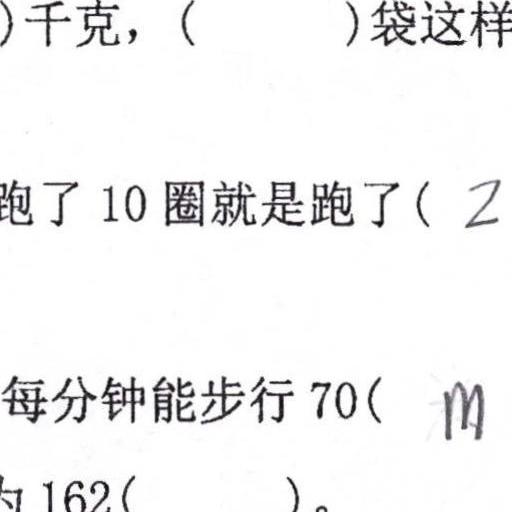 )千克，(      )袋这样
跑了 10 圈就是跑了( 2
每分钟能步行 70( m
为 162(      )。